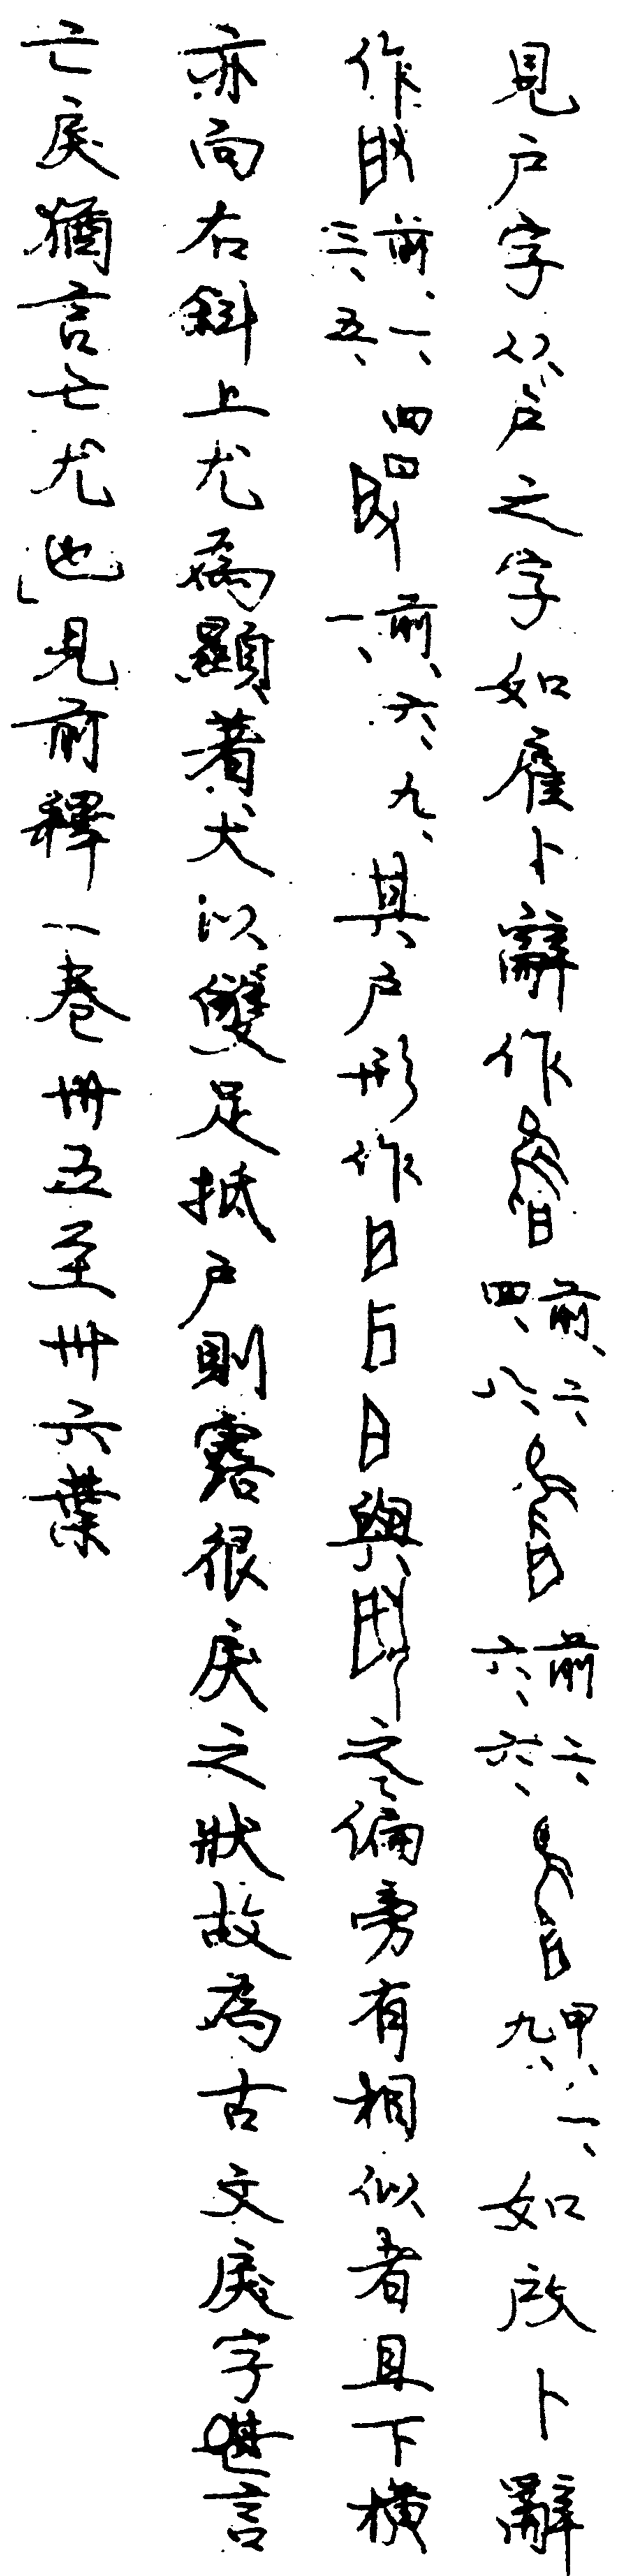 見戶字从戶之字如雇卜辭作前、六、四、八、前六、六、六、甲、一、九、如啟卜辭
作前、一、三、五、前、六、九、一、其戶形作與之偏旁有相似者且下橫
亦向右斜上尤為顯著犬以雙足抵戶則露很戾之狀故為古文戾字其言
亡戾猶言亡尤也」見前釋一卷卌五至卌六葉